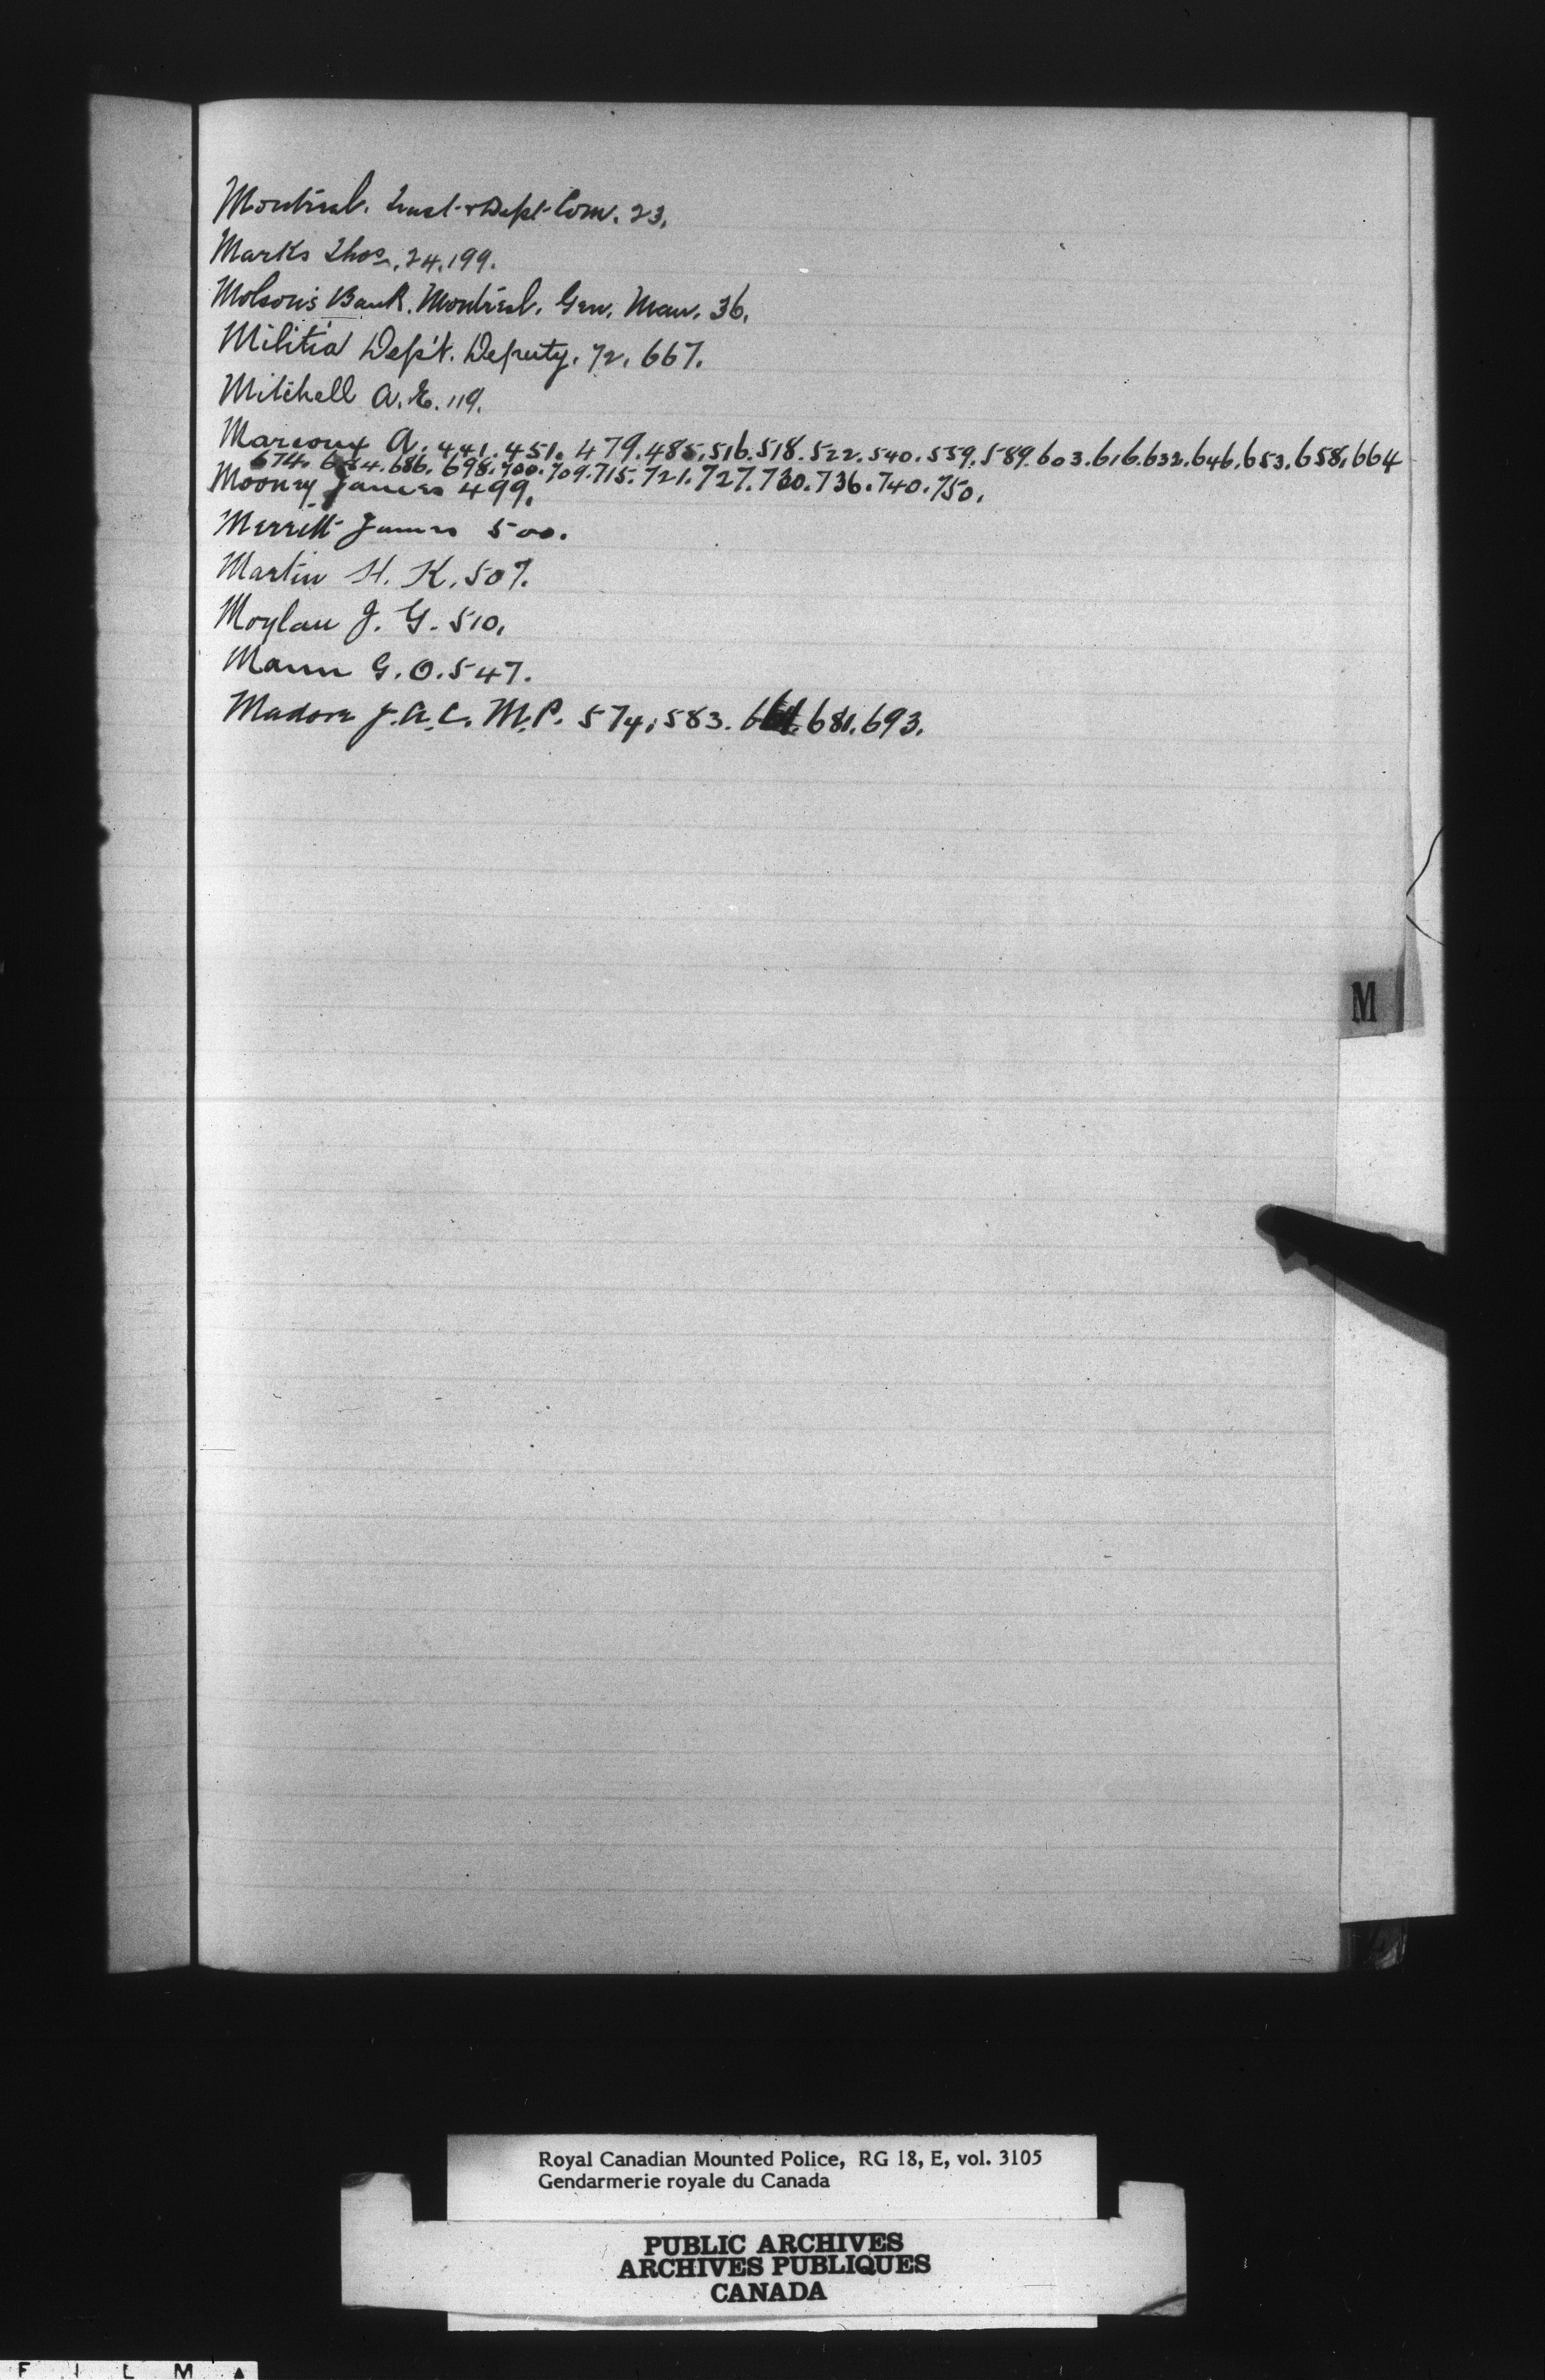 Montreal. Trust & Dept Com. 23.
Marks Thos. 24. 199.
Molson's Bank. Montreal. Gen. Man. 36.
Militia Dep't. Deputy. 72. 667.
Mitchell A. E. 119.
Marcoux A. 441. 451. 479. 485. 516. 518. 522. 540. 559. 589. 603. 616. 632. 646. 653. 658. 664
674. 684. 686. 698. 700. 709. 715. 721. 727. 730. 736. 740. 750.
Mooney James 499.
Merritt James 500.
Martin H. K. 507.
Moylan J. G. 510.
Mann G. O. 547.
Madore J. A. C. M.P. 574. 583. 681. 693.
M
Royal Canadian Mounted Police, RG 18, E, vol. 3105
Gendarmerie royale du Canada
PUBLIC ARCHIVES
ARCHIVES PUBLIQUES
CANADA
F I L M